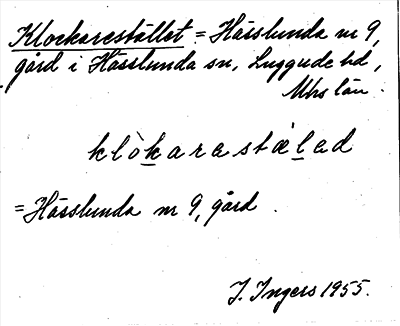 Klockarestället = Hässlunda nr 9,
gård i Hässlunda sn, Luggude hd,
Mhs län.
klòkarestælad
= Hässlunda nr 9, gård.
I. Ingers 1955.